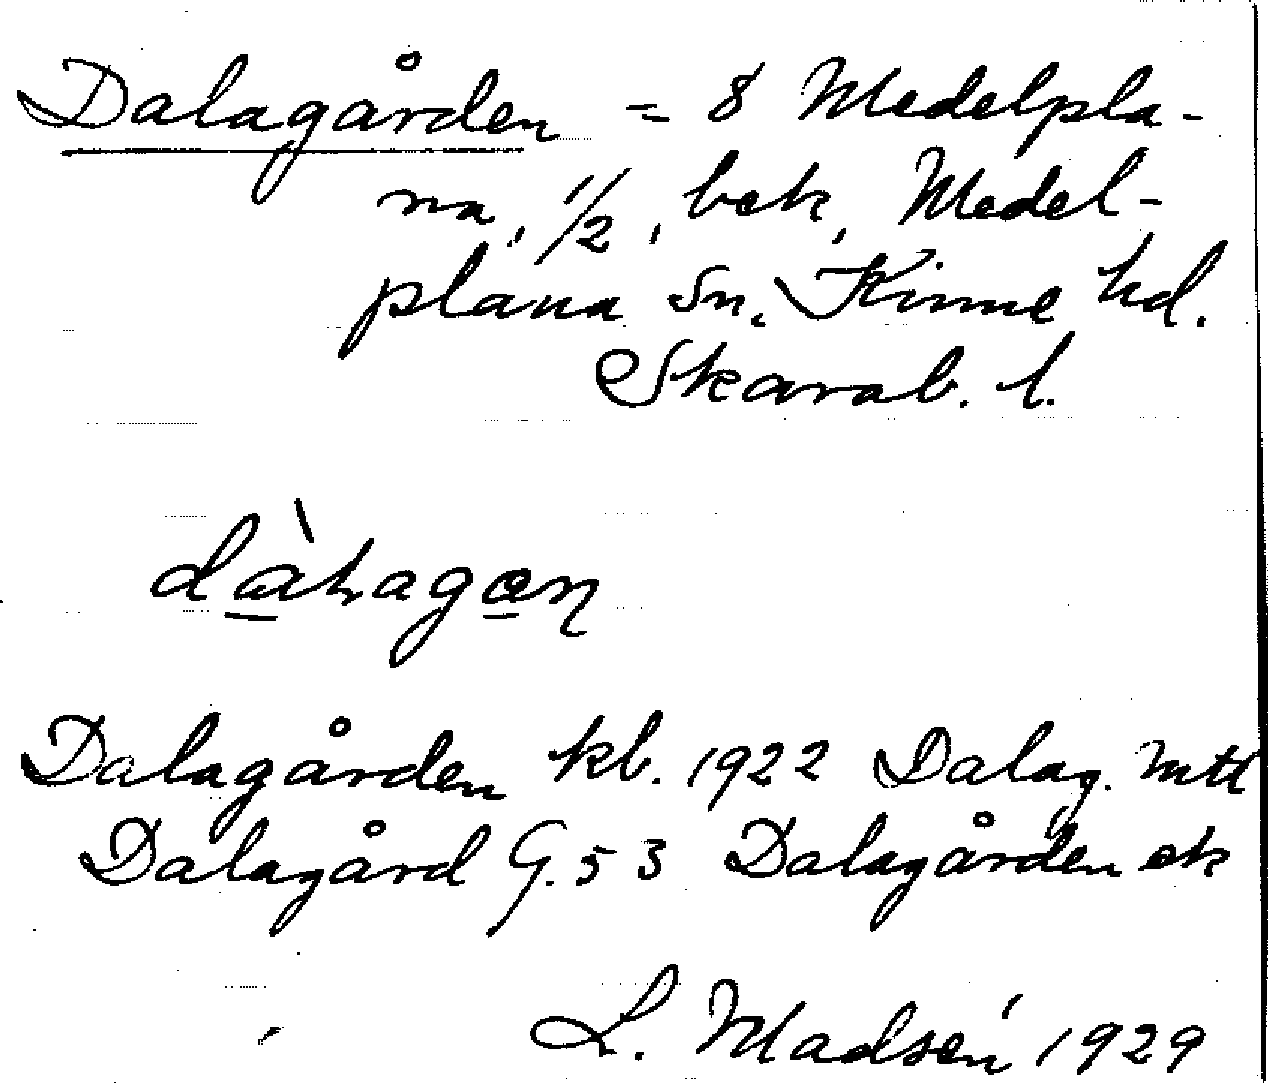 Dalagården = 8 Medelpla-
na, 1/2, bek, Medel-
plana sn, Kinne hd.
Skarab. l.
dàhagæn
Dalagården kb. 1922 Dalag. mtl
Dalagård G. 53 Dalagården ek
L. Madsén 1929